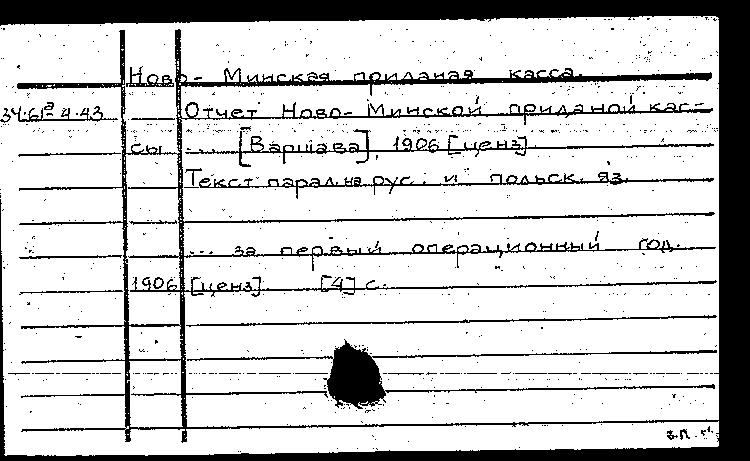 Ново- Минская приданая касса.
34.61ᵃ 4.43 Отчет Ново-Минской приданой кас-
сы ... [Варшава], 1906 [ценз].
Текст парал. на рус. и польск. яз.
... за первый операционный год.
1906 [ценз]. [4] с.